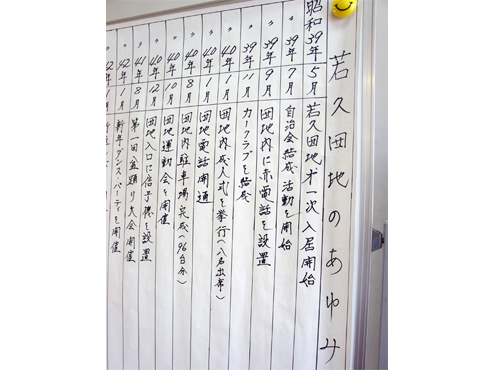 若久団地のあゆみ
昭和39年 5月 若久団地才一次入居開始
〃 39年 7月 自治会結成活動を開始
〃 39年 9月 団地内に赤電話を設置
〃 39年 11月 カークラブを結成
〃 40年 1月 団地内成人式を挙行(八名出席)
〃 40年 1月 団地電話開通
〃 40年 8月 団地内駐車場完成(96台分)
〃 40年 10月 団地運動会を開催
〃 40年 12月 団地入口に信号機を設置
〃 41年 8月 第一回盆踊り大会開催
〃 42年 1月 新年ダンス・パーティを開催
〃 42年